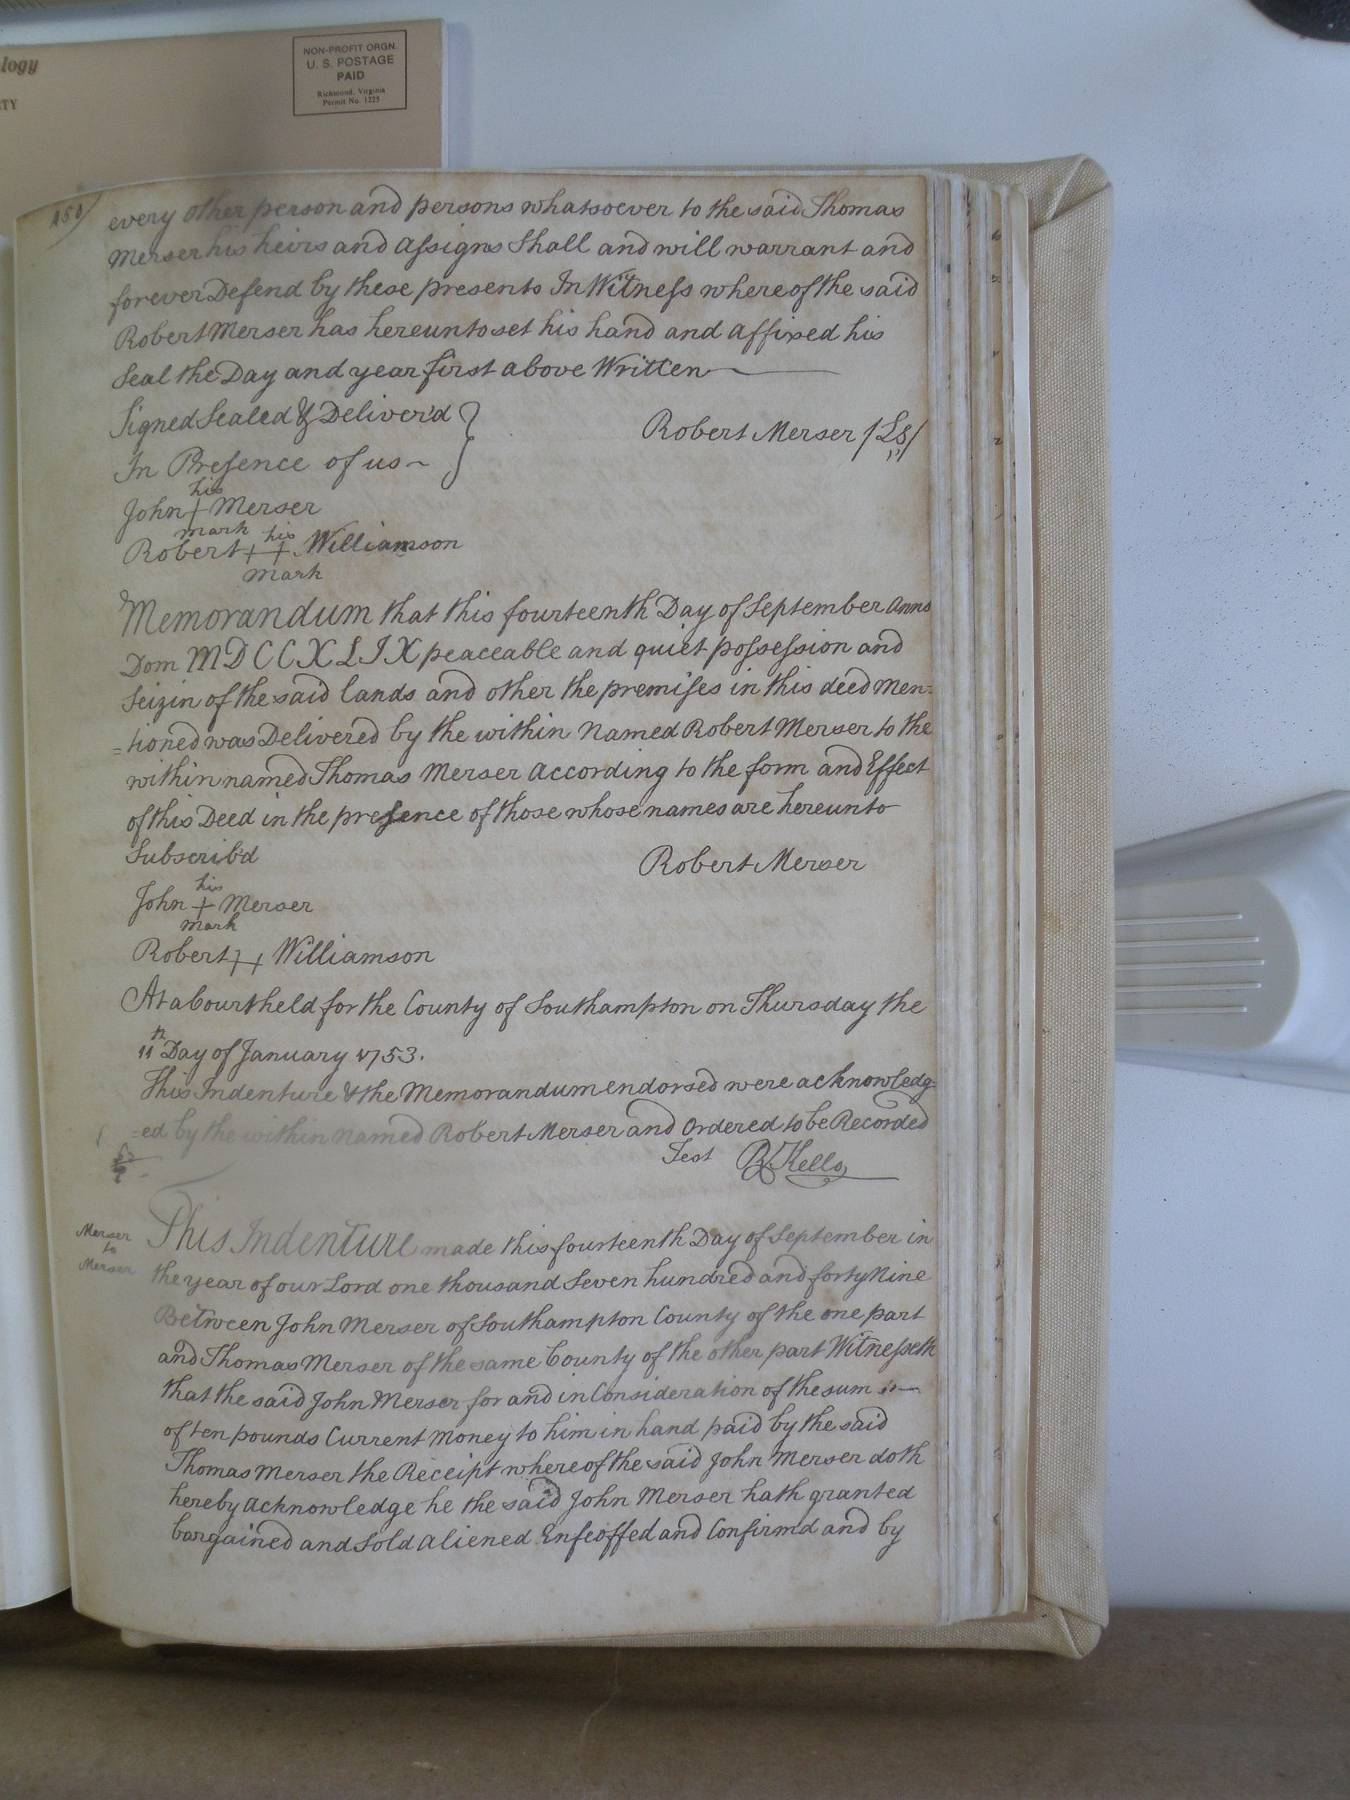 logy
TY
NON-PROFIT ORGN.
U. S. POSTAGE
PAID
Richmond, Virginia
Permit No. 1225
every other person and persons whatsoever to the said Thomas
Merser his heirs and assigns Shall and will warrant and
forever Defend by these presents In Witness whereof the said
Robert Merser has hereunto set his hand and affixed his
Seal the Day and year first above Written
Signed Sealed & Deliver'd
In Presence of us
Robert Merser /LS/
his
John + Merser
mark
his
Robert ++ Williamson
mark
Memorandum that this fourteenth Day of September Anno
Dom MDCCXLIX peaceable and quiet possession and
Seizin of the said lands and other the premises in this deed Men=
=tioned was Delivered by the within Named Robert Merser to the
within named Thomas Merser according to the form and Effect
of this Deed in the presence of those whose names are hereunto
Subscrib'd
Robert Merser
his
John + Merser
mark
Robert ++ Williamson
At a Court held for the County of Southampton on Thursday the
11th Day of January 1753.
This Indenture & the Memorandum endorsed were acknowledg=
=ed by the within named Robert Merser and Ordered to be Recorded
Test R. Kello
Merser
to
Merser
This Indenture made this fourteenth Day of September in
the year of our Lord one thousand Seven hundred and forty Nine
Between John Merser of Southampton County of the one part
and Thomas Merser of the same County of the other part Witnesseth
that the said John Merser for and in Consideration of the sum
of ten pounds Current Money to him in hand paid by the said
Thomas Merser the Receipt whereof the said John Merser doth
hereby acknowledge he the said John Merser hath granted
bargained and Sold aliened Enfeoffed and Confirmd and by